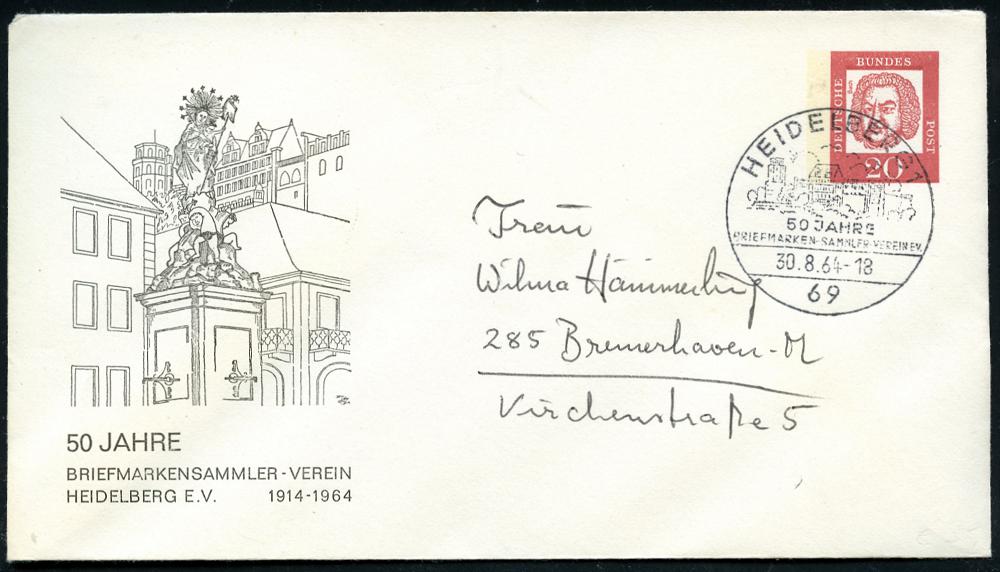 BUNDES
DEUTSCHE
POST
Bach
20
HEIDELBERG 1
50 JAHRE
BRIEFMARKEN-SAMMLER-VEREIN E.V.
30.8.64-18
69
Frau
Wilma Hämmerling
285 Bremerhaven-M
Virchenstraße 5
50 JAHRE
BRIEFMARKENSAMMLER-VEREIN
HEIDELBERG E.V. 1914-1964